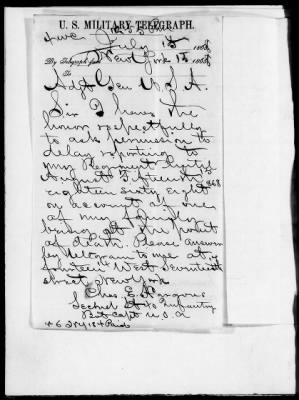 U. S. MILITARY TELEGRAPH.
July 15 1868
By Telegraph from New York 15 1868
To
Adjt Gen U.S.A.
Sir I have the
honor respectfully
to ask permission to
delay reporting to
my Regiment until
August fifteenth
eighteen sixty eight
on account of one
of my family
being at the point
of death. Please answer
by telegram to me at
fourteen West Seventeenth
street New York
Chas E.
Second Lt 40 Infantry
Bvt Capt U.S.A
Paid